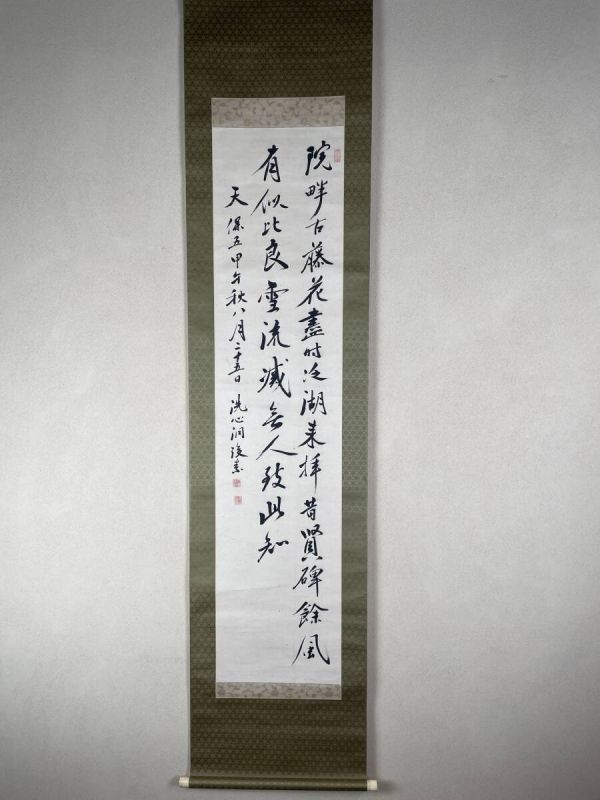 院畔古藤花盡时泛湖来拝昔賢碑餘風
有似比良雪流滅無人致此知
天保五甲午秋八月二十五日 洗心洞後素